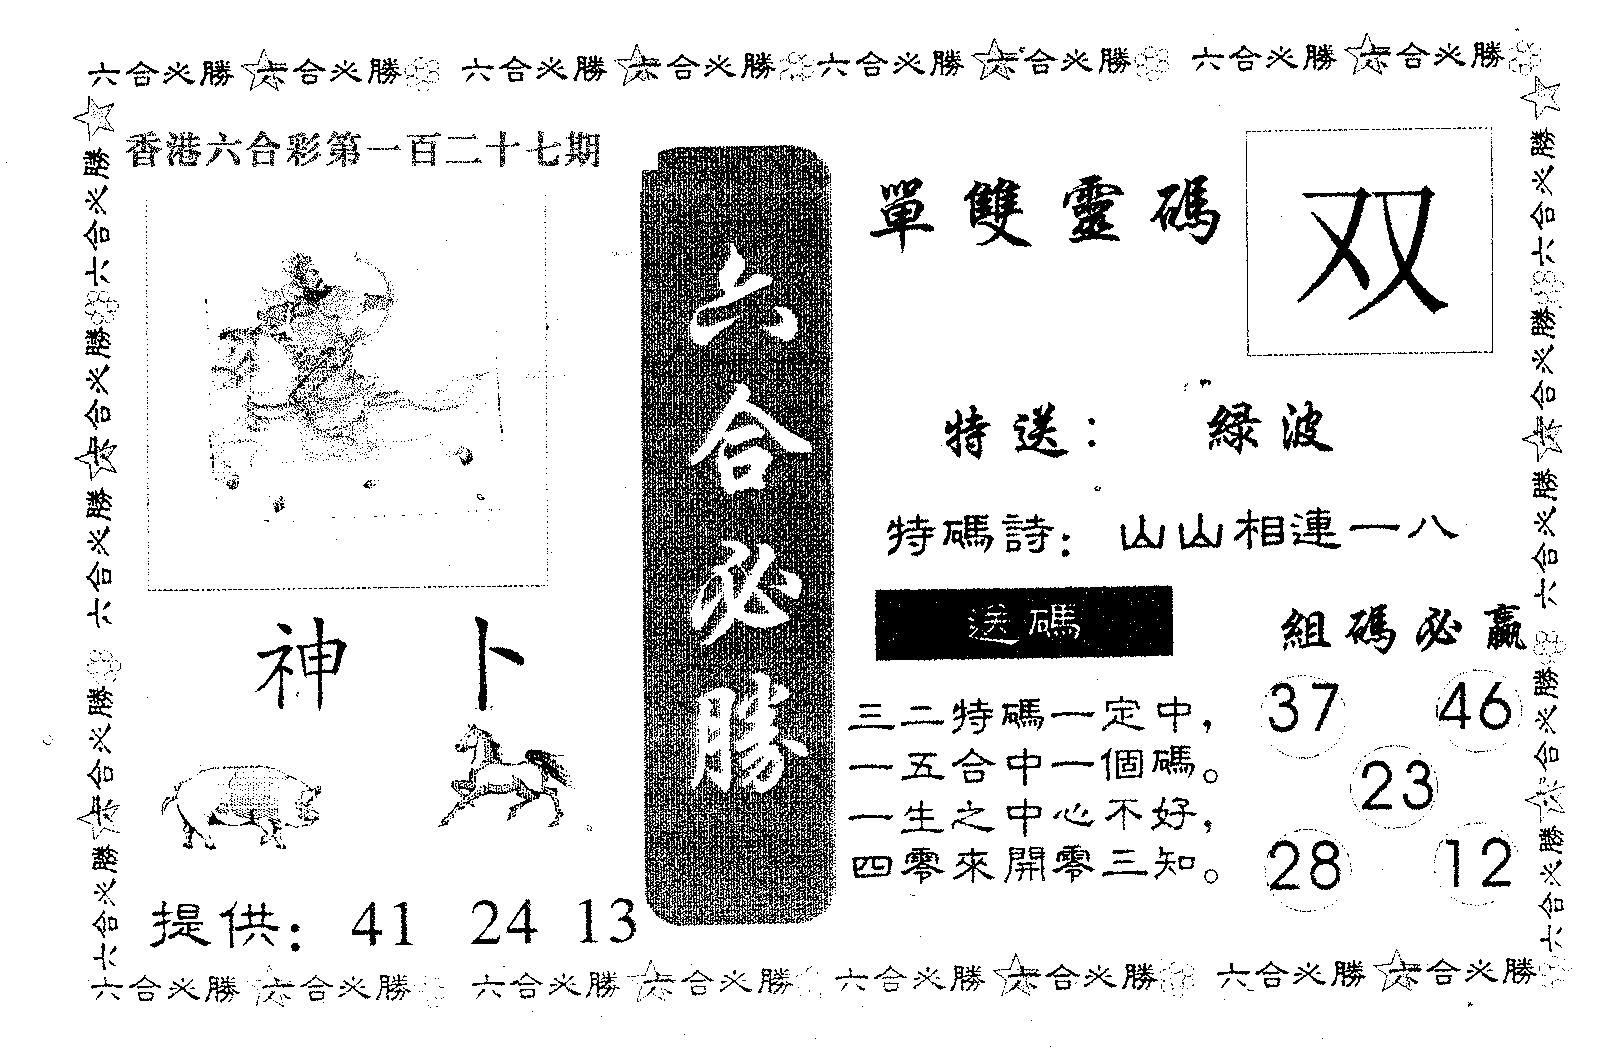 六合必勝 六合必勝 六合必勝 六合必勝 六合必勝 六合必勝 六合必勝 六合必勝
六合必勝 六合必勝 六合必勝 六合必勝 六合必勝
香港六合彩第一百二十七期
神 卜
提供： 41 24 13
六合必勝
單雙靈碼
双
特送： 緑波
特碼詩：山山相連一八
送碼
三二特碼一定中，
一五合中一個碼。
一生之中心不好，
四零來開零三知。
組碼必贏
37 46
23
28 12
六合必勝 六合必勝 六合必勝 六合必勝 六合必勝
六合必勝 六合必勝 六合必勝 六合必勝 六合必勝 六合必勝 六合必勝 六合必勝